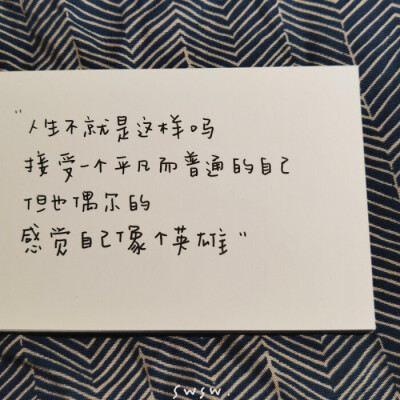 "人生不就是这样吗
接受一个平凡而普通的自己
但也偶尔的
感觉自己像个英雄"
swsw.